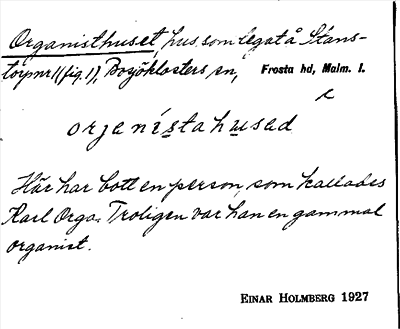 Organisthuset, hus som legat å Stans-
torp nr 1 (fig. 1), Bosjöklosters sn, Frosta hd, Malm. l.
organistahused
Här har bott en person, som kallades
Karl Orga. Troligen var han en gammal
organist.
EINAR HOLMBERG 1927